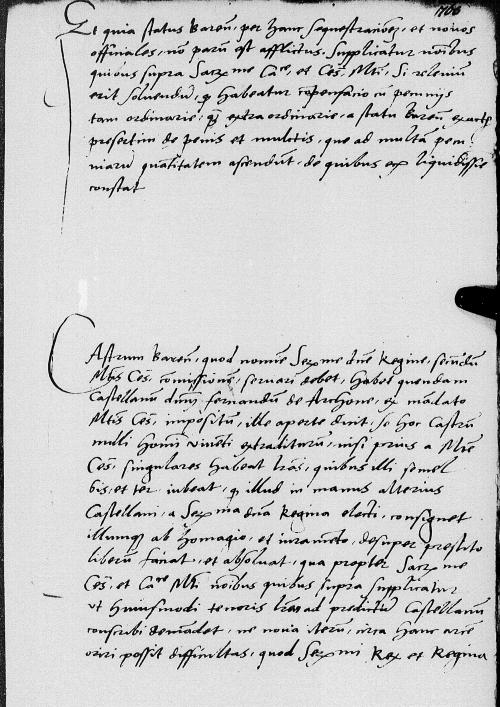 Et quia status Baren̄, per hanc sequestrationē, et novos
officiales, nō parū est afflictus, supplicatur nōibus
quibus supra Sacr̄me Cae, et Ces. Mti, Si relevium
erit solvendū, habeatur cōpensatio cū pecunijs
tam ordinarie, extra ordinarie, a statu Baren̄ exactis
presertim de penis et mulctis, que ad multā pecu
niarū quātitatem ascendūt, de quibus ex liquidissie
constat
Castrum Baren̄, quod nomīe Serme dn̄e Regine, secūdū
Mtis Ces. comissionē, servari debet, habet quendam
Castellanū dnū fernandū de Archone, ex mādato
Mtis Ces. impositū, ille aperte dicit, se hoc castrū
nulli homī vivēti extraditurū, nisi prius a Mte
Ces. singulares habeat lr̄as, quibus illi semel
bis, et ter iubeat, illud in manus alterius
Castellani, a Serma dn̄a Regina electi, consignet
illumq ab homagio, et iuramēto, desuper prestito
liberū faciat, et absolvat, qua propter Sacr̄me
Ces. et Cae Mti nōibus quibus supra supplicatur
ut huiusmodi tenoris lr̄as ad predictū Castellanū
conscribi demādet, ne nova iterū, circa hanc
oriri possit difficultas, quod Sermi Rex et Regina